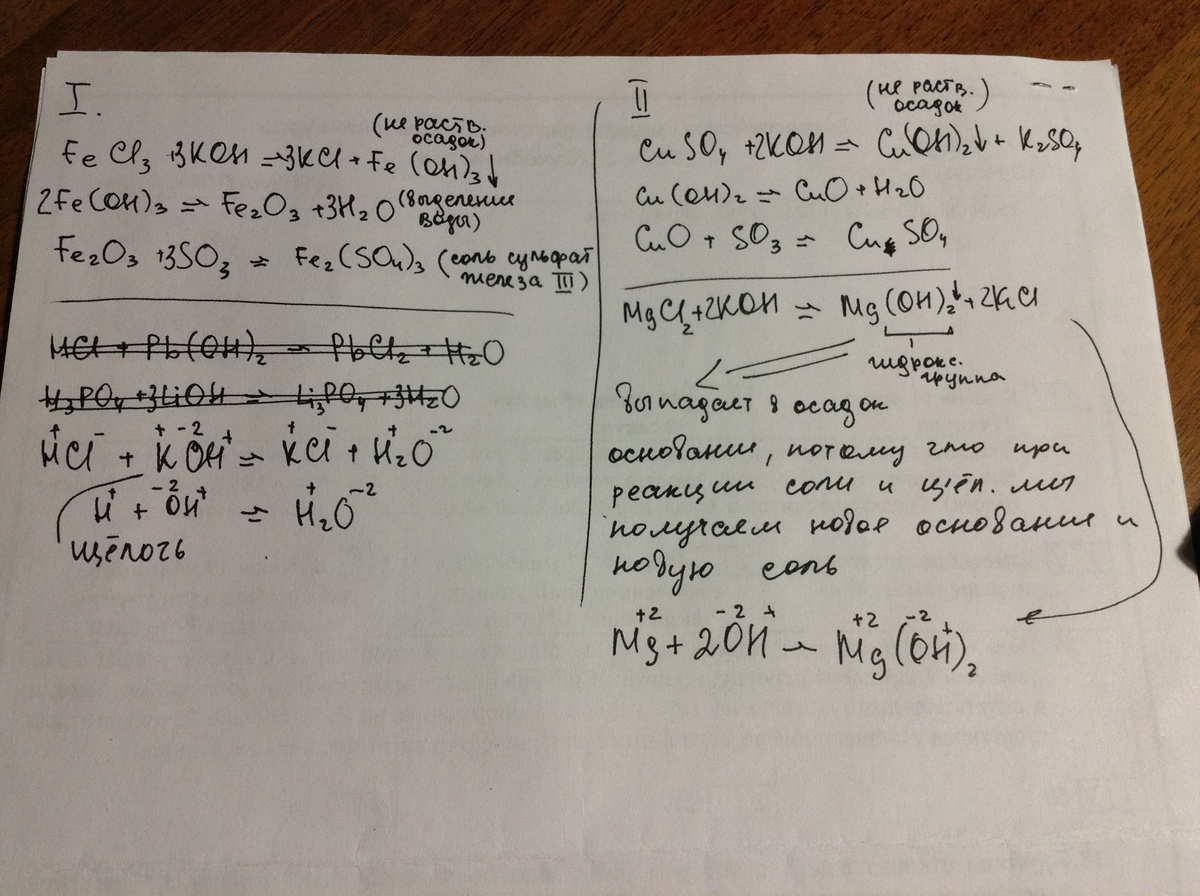 I.
(не раств.
осадок)
FeCl₃ + 3KOH = 3KCl + Fe(OH)₃↓
2Fe(OH)₃ = Fe₂O₃ + 3H₂O (выделение
воды)
Fe₂O₃ + 3SO₃ = Fe₂(SO₄)₃ (соль сульфат
железа III)
HCl + Pb(OH)₂ = PbCl₂ + H₂O
H₃PO₄ + 3LiOH = Li₃PO₄ + 3H₂O
H⁺Cl⁻ + K⁺O⁻²H⁺ = K⁺Cl⁻ + H₂⁺O⁻²
H⁺ + O⁻²H⁺ = H₂⁺O⁻²
щёлочь
II
(не раств.
осадок)
CuSO₄ + 2KOH = Cu(OH)₂↓ + K₂SO₄
Cu(OH)₂ = CuO + H₂O
CuO + SO₃ = CuSO₄
MgCl₂ + 2KOH = Mg(OH)₂↓ + 2KCl
гидрокс.
группа
Выпадает в осадок
основание, потому что при
реакции соли и щёл. мы
получаем новое основание и
новую соль
Mg⁺² + 2O⁻²H⁺ = Mg⁺²(O⁻²H⁺)₂